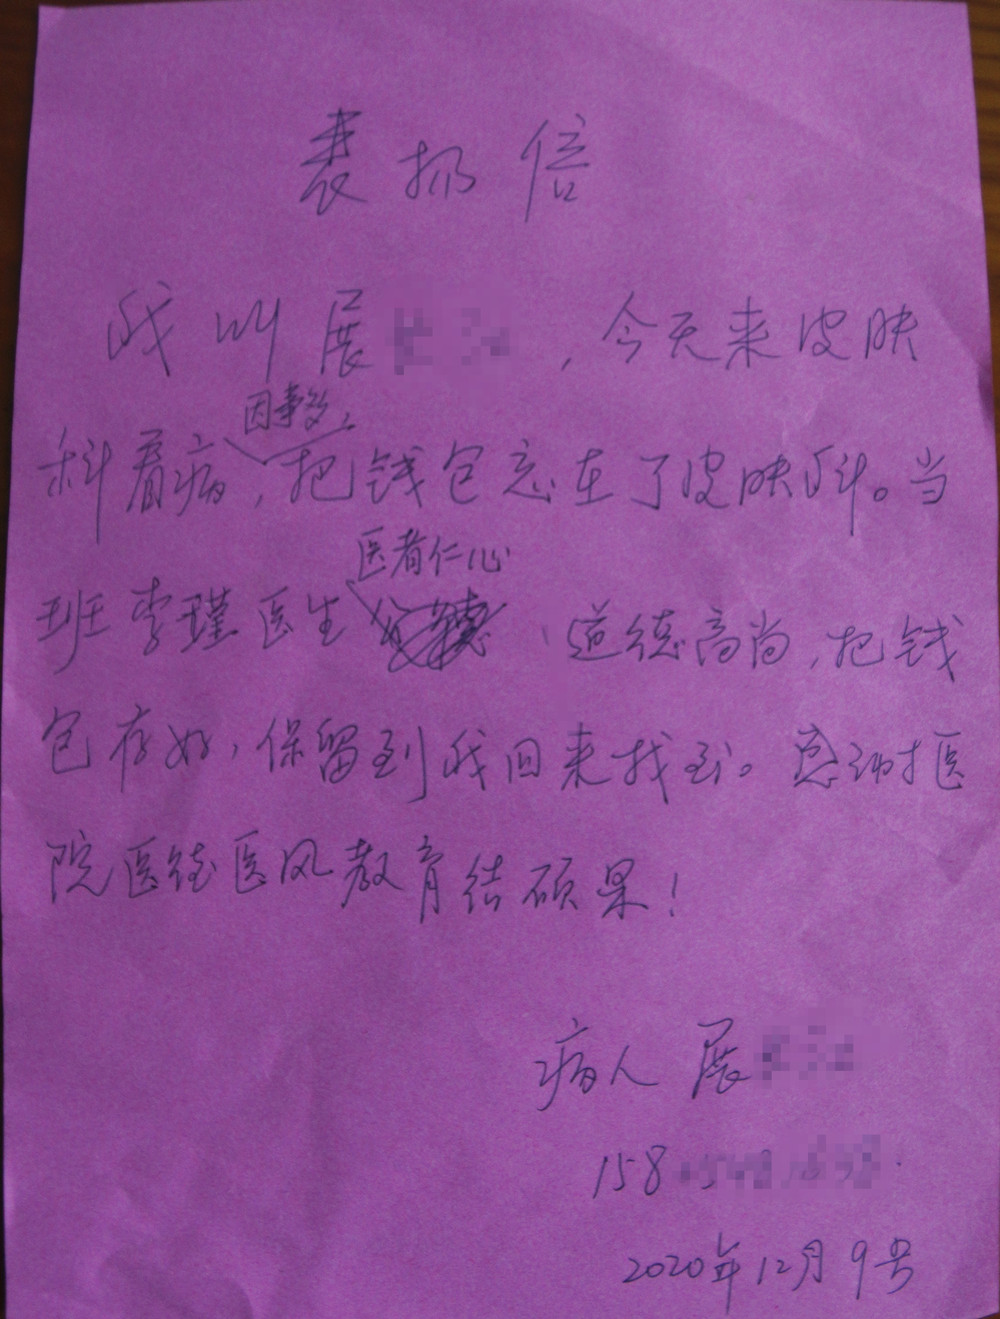 表扬信
我叫展，今天来皮肤
因事多，
科看病，把钱包忘在了皮肤科。当
医者仁心
班李瑾医生、道德高尚，把钱
包存好，保留到我回来找到。感谢医
院医德医风教育结硕果！
病人 展
158
2020年12月9号